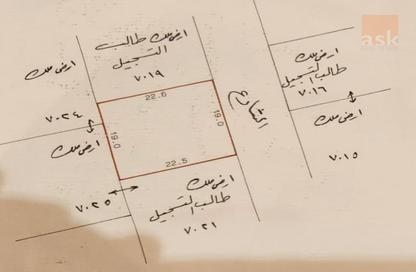 ask
ارض ملك طالب
التسجيل
٧٠١٩
ارض ملك
٧٠٢٤
ارض ملك
٧٠٢٥
22.6
19.0
19.0
22.5
الشارع
ارض ملك
طالب التسجيل
٧٠١٦
ارض ملك
٧٠١٥
ارض ملك
طالب التسجيل
٧٠٢١